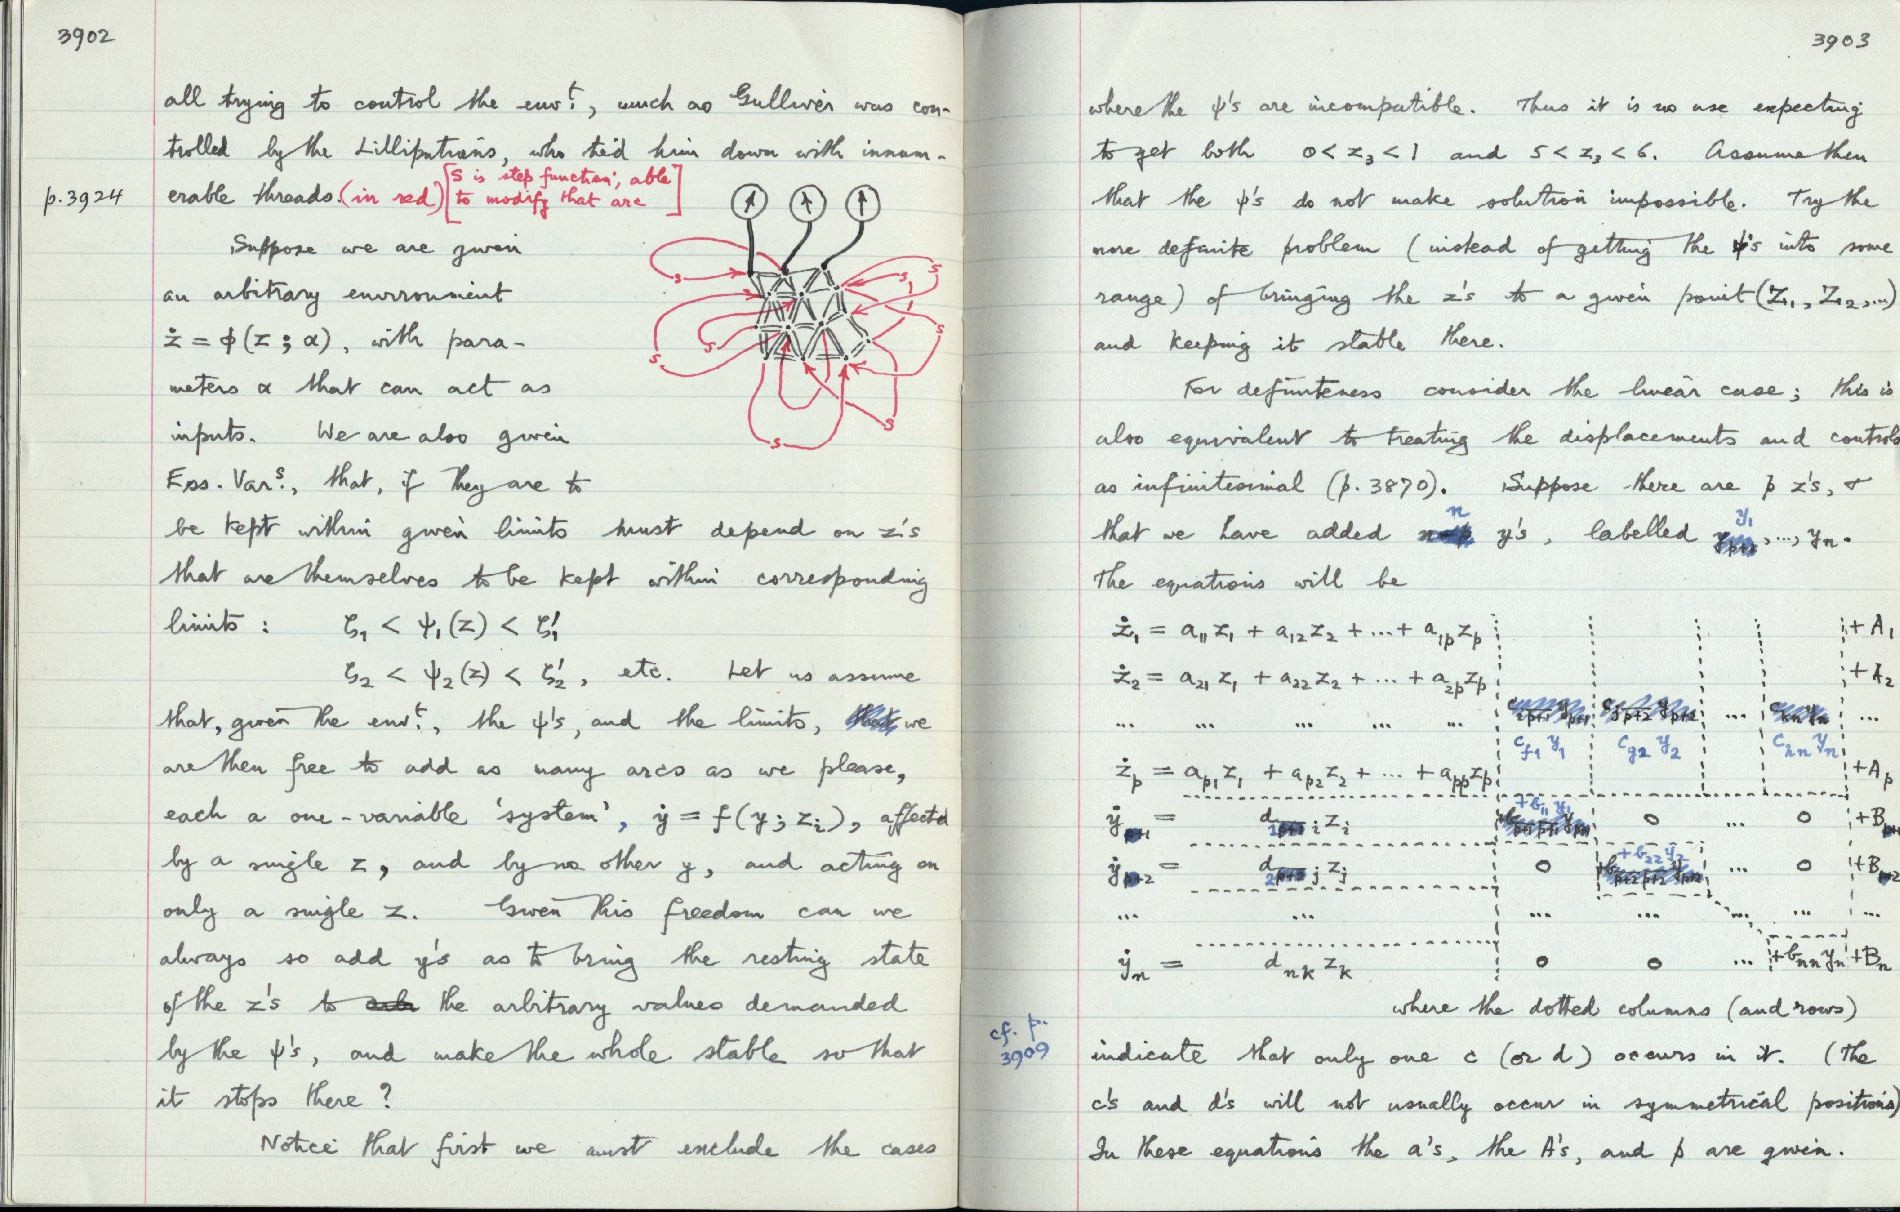 3902
all trying to control the envt., much as Gulliver was con-
trolled by the Lilliputians, who tied him down with innum-
p.3924
erable threads. (in red) [S is step function; able
to modify that arc]
Suppose we are given
an arbitrary environment
ż = φ(z; α), with para-
meters α that can act as
inputs. We are also given
Ess. Vars., that, if they are to
be kept within given limits must depend on z's
that are themselves to be kept within corresponding
limits: ζ₁ < ψ₁(z) < ζ₁′
ζ₂ < ψ₂(z) < ζ₂′, etc. Let us assume
that, given the envt., the ψ's, and the limits, we
are then free to add as many arcs as we please,
each a one-variable 'system', ẏ = f(y; zᵢ), affected
by a single z, and by no other y, and acting on
only a single z. Given this freedom can we
always so add y's as to bring the resting state
of the z's to the arbitrary values demanded
by the ψ's, and make the whole stable so that
it stops there?
Notice that first we must exclude the cases
s
s
s
s
s
s
s
s
3903
where the ψ's are incompatible. Thus it is no use expecting
to get both 0 < z₃ < 1 and 5 < z₃ < 6. Assume then
that the ψ's do not make solution impossible. Try the
more definite problem (instead of getting the ψ's into some
range) of bringing the z's to a given point (Z₁, Z₂, ...)
and keeping it stable there.
For definiteness consider the linear case; this is
also equivalent to treating the displacements and controls
as infinitesimal (p. 3870). Suppose there are p z's, &
that we have added n y's, labelled y₁, ..., yₙ.
The equations will be
ż₁ = a₁₁z₁ + a₁₂z₂ + ... + a₁ₚzₚ + A₁
ż₂ = a₂₁z₁ + a₂₂z₂ + ... + a₂ₚzₚ + A₂
... ... ... ... ... ... ...
c_f1 y₁ c_g2 y₂ c_hn yₙ
żₚ = aₚ₁z₁ + aₚ₂z₂ + ... + aₚₚzₚ + Aₚ
ẏ₁ = d₁ᵢ zᵢ + b₁₁y₁ 0 ... 0 + B₁
ẏ₂ = d₂ⱼ zⱼ 0 + b₂₂y₂ ... 0 + B₂
... ... ... ... ... ... ...
ẏₙ = dₙₖ zₖ 0 0 ... + bₙₙyₙ + Bₙ
where the dotted columns (and rows)
cf. p.
3909
indicate that only one c (or d) occurs in it. (The
c's and d's will not usually occur in symmetrical positions)
In these equations the a's, the A's, and p are given.